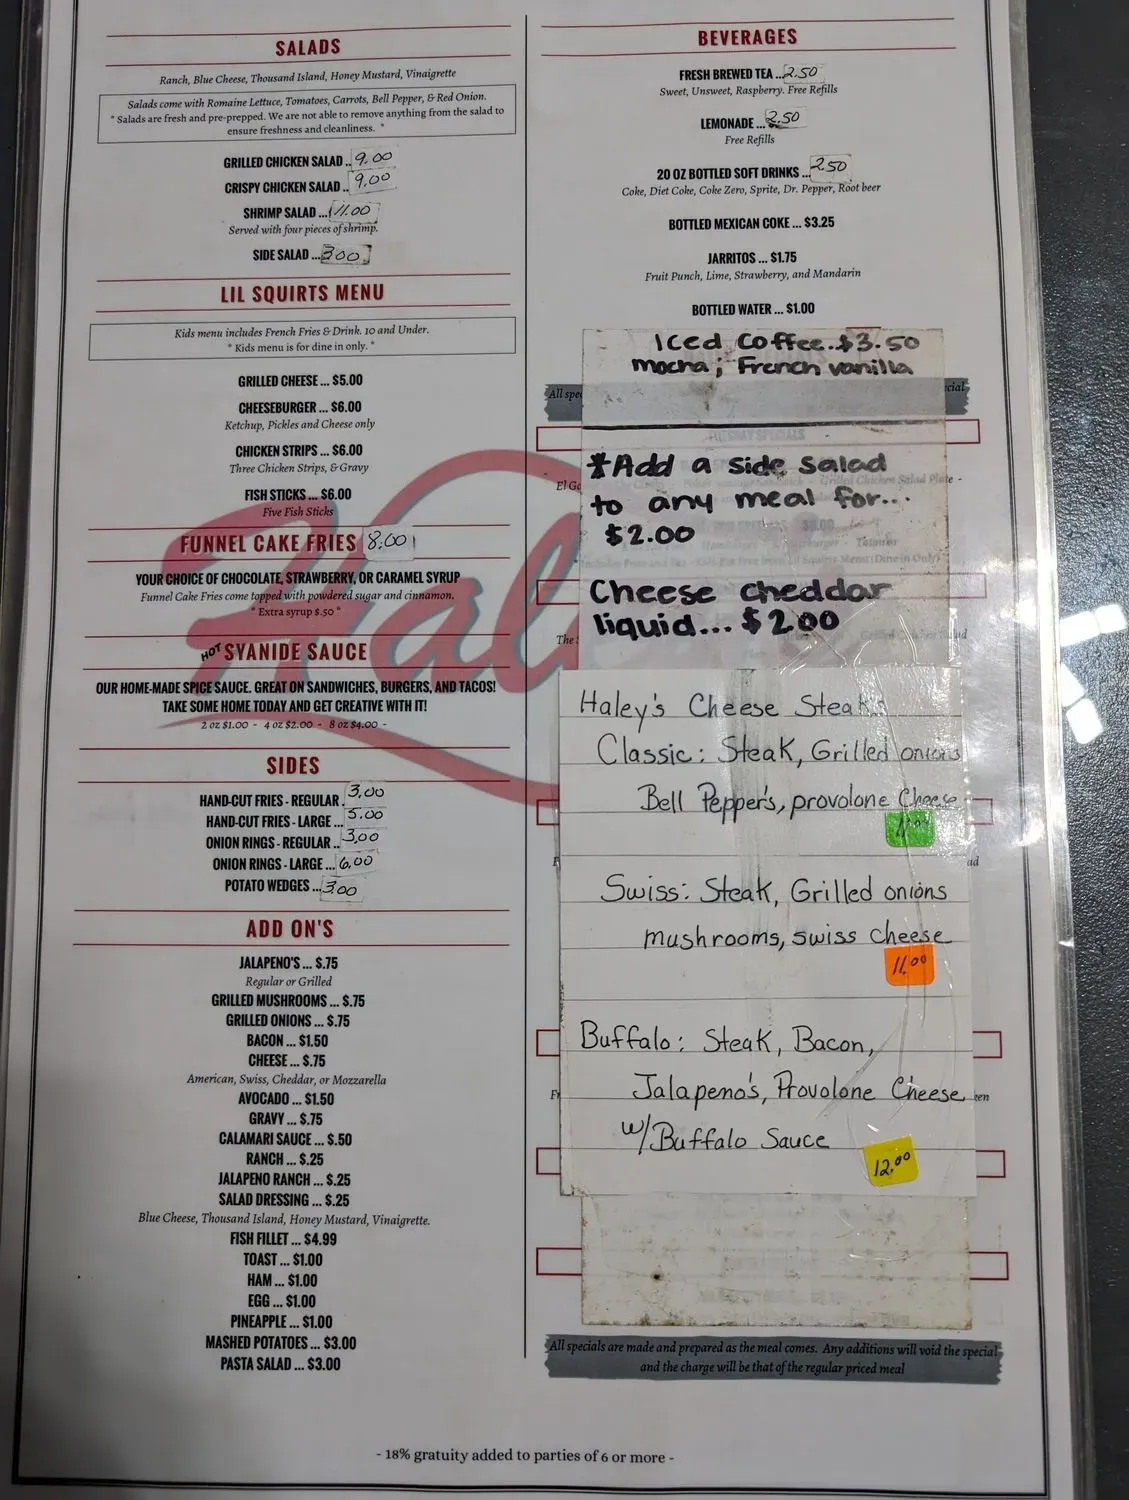 SALADS
Ranch, Blue Cheese, Thousand Island, Honey Mustard, Vinaigrette
Salads come with Romaine Lettuce, Tomatoes, Carrots, Bell Pepper, & Red Onion.
* Salads are fresh and pre-prepped. We are not able to remove anything from the salad to
ensure freshness and cleanliness. *
GRILLED CHICKEN SALAD .. 9.00
CRISPY CHICKEN SALAD .. 9.00
SHRIMP SALAD ... 11.00
Served with four pieces of shrimp.
SIDE SALAD ... 3.00
LIL SQUIRTS MENU
Kids menu includes French Fries & Drink. 10 and Under.
* Kids menu is for dine in only. *
GRILLED CHEESE ... $5.00
CHEESEBURGER ... $6.00
Ketchup, Pickles and Cheese only
CHICKEN STRIPS ... $6.00
Three Chicken Strips, & Gravy
FISH STICKS ... $6.00
Five Fish Sticks
FUNNEL CAKE FRIES 8.00
YOUR CHOICE OF CHOCOLATE, STRAWBERRY, OR CARAMEL SYRUP
Funnel Cake Fries come topped with powdered sugar and cinnamon.
* Extra syrup $.50 *
HOT SYANIDE SAUCE
OUR HOME-MADE SPICE SAUCE. GREAT ON SANDWICHES, BURGERS, AND TACOS!
TAKE SOME HOME TODAY AND GET CREATIVE WITH IT!
2 oz $1.00 - 4 oz $2.00 - 8 oz $4.00 -
SIDES
HAND-CUT FRIES - REGULAR . 3.00
HAND-CUT FRIES - LARGE ... 5.00
ONION RINGS - REGULAR .. 3.00
ONION RINGS - LARGE ... 6.00
POTATO WEDGES ... 3.00
ADD ON'S
JALAPENO'S ... $.75
Regular or Grilled
GRILLED MUSHROOMS ... $.75
GRILLED ONIONS ... $.75
BACON ... $1.50
CHEESE ... $.75
American, Swiss, Cheddar, or Mozzarella
AVOCADO ... $1.50
GRAVY ... $.75
CALAMARI SAUCE ... $.50
RANCH ... $.25
JALAPENO RANCH ... $.25
SALAD DRESSING ... $.25
Blue Cheese, Thousand Island, Honey Mustard, Vinaigrette.
FISH FILLET ... $4.99
TOAST ... $1.00
HAM ... $1.00
EGG ... $1.00
PINEAPPLE ... $1.00
MASHED POTATOES ... $3.00
PASTA SALAD ... $3.00
BEVERAGES
FRESH BREWED TEA ... 2.50
Sweet, Unsweet, Raspberry. Free Refills
LEMONADE ... 2.50
Free Refills
20 OZ BOTTLED SOFT DRINKS ... 2.50
Coke, Diet Coke, Coke Zero, Sprite, Dr. Pepper, Root beer
BOTTLED MEXICAN COKE ... $3.25
JARRITOS ... $1.75
Fruit Punch, Lime, Strawberry, and Mandarin
BOTTLED WATER ... $1.00
Iced Coffee..$3.50
mocha; French vanilla
All
*Add a side salad
to any meal for...
$2.00
Cheese cheddar
liquid... $2.00
The
Haley's Cheese Steak
Classic: Steak, Grilled onions
Bell Pepper's, provolone Cheese
Swiss: Steak, Grilled onions
mushrooms, swiss cheese
11.00
Buffalo: Steak, Bacon,
Jalapeno's, Provolone Cheese
w/Buffalo Sauce
12.00
All specials are made and prepared as the meal comes. Any additions will void the special
and the charge will be that of the regular priced meal
- 18% gratuity added to parties of 6 or more -